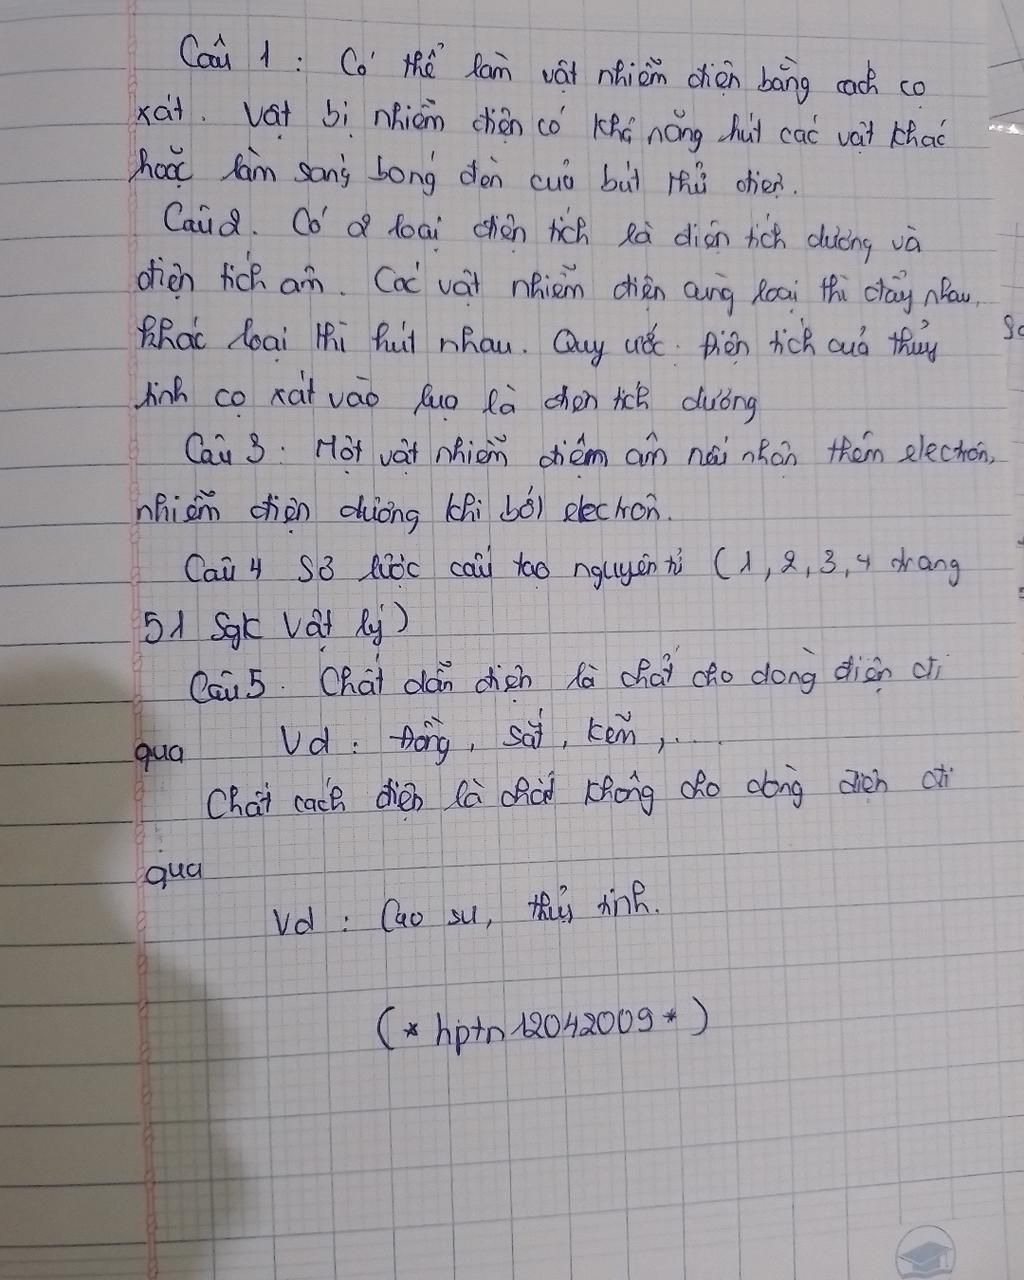 Câu 1 : Có thể làm vật nhiễm điện bằng cách cọ
xát. Vật bị nhiễm điện có khả năng hút các vật khác
hoặc làm sáng bóng đèn của bút thử điện.
Câu 2. Có 2 loại điện tích là điện tích dương và
điện tích âm. Các vật nhiễm điện cùng loại thì đẩy nhau,
khác loại thì hút nhau. Quy ước. Điện tích của thủy
tinh cọ xát vào lụa là điện tích dương
Câu 3 : Một vật nhiễm điệm âm nếu nhận thêm electron,
nhiễm điện dương khi bớt electron.
Câu 4 Sơ lược cấu tạo nguyên tử (1, 2, 3, 4 trang
51 Sgk Vật lý)
Câu 5. Chất dẫn điện là chất cho dòng điện đi
qua Vd : Đồng, sắt, kẽm,....
Chất cách điện là chất không cho dòng điện đi
qua
Vd : Cao su, thủy tinh.
(* hptn 12042009 *)